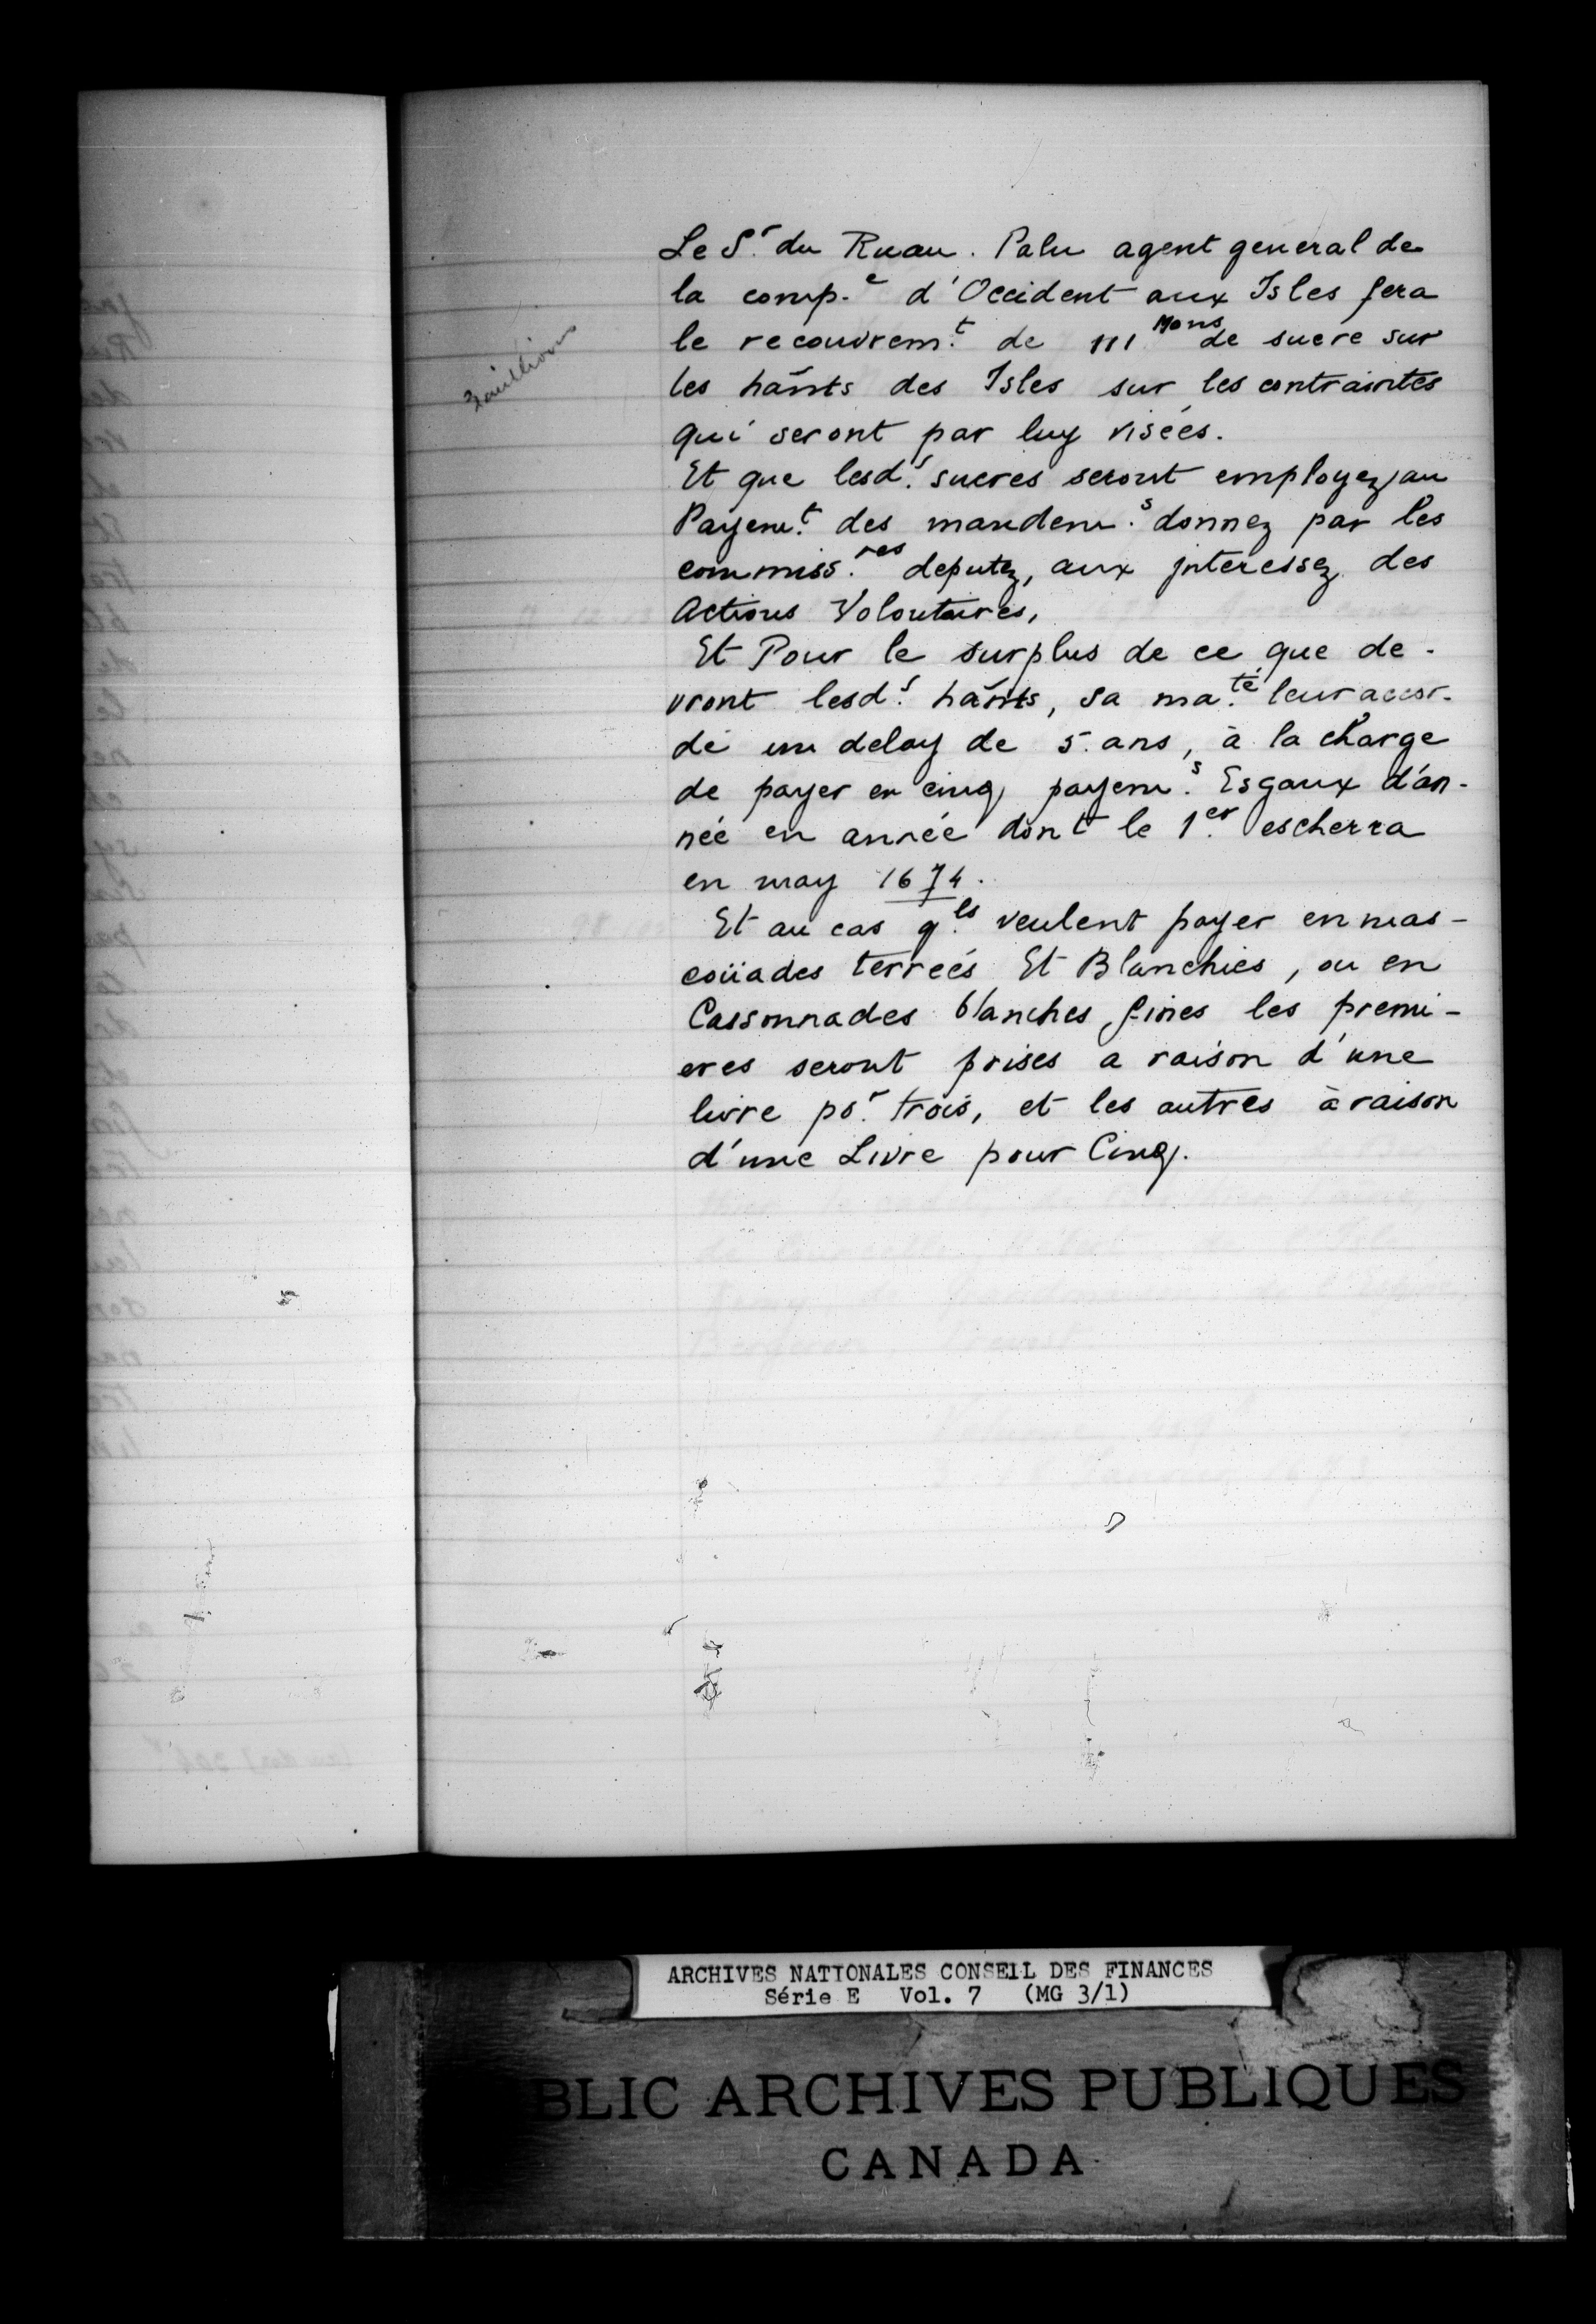 Le S.r du Ruau. Palu agent general de
la comp.e d'Occident aux Isles fera
le recouvrem.t de III Mons de sucre sur
3 millions
les hãnts des Isles sur les contraintes
qui seront par luy visées.
Et que lesd.s sucres seront employez au
Payem.t des mandem.s donnez par les
commiss.res deputez, aux interessez des
Actions Volontaires,
Et Pour le surplus de ce que de-
vront lesd.s hãnts, sa ma.té leur accor-
de un delay de 5. ans, à la charge
de payer en cinq payem.s Esgaux d'an-
née en année dont le 1.er escherra
en may 1674.
Et au cas q.ls veulent payer en mas-
coüades terreés Et Blanchies, ou en
Cassonnades blanches fines les premi-
eres seront prises a raison d'une
livre po.r trois, et les autres à raison
d'une Livre pour Cinq.
ARCHIVES NATIONALES CONSEIL DES FINANCES
Série E Vol. 7 (MG 3/1)
BLIC ARCHIVES PUBLIQUES
CANADA